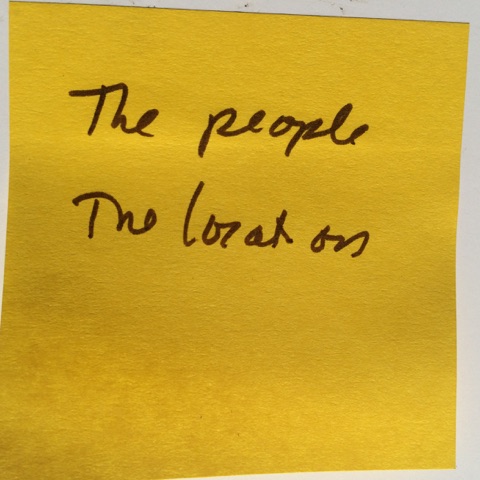 The people
The location